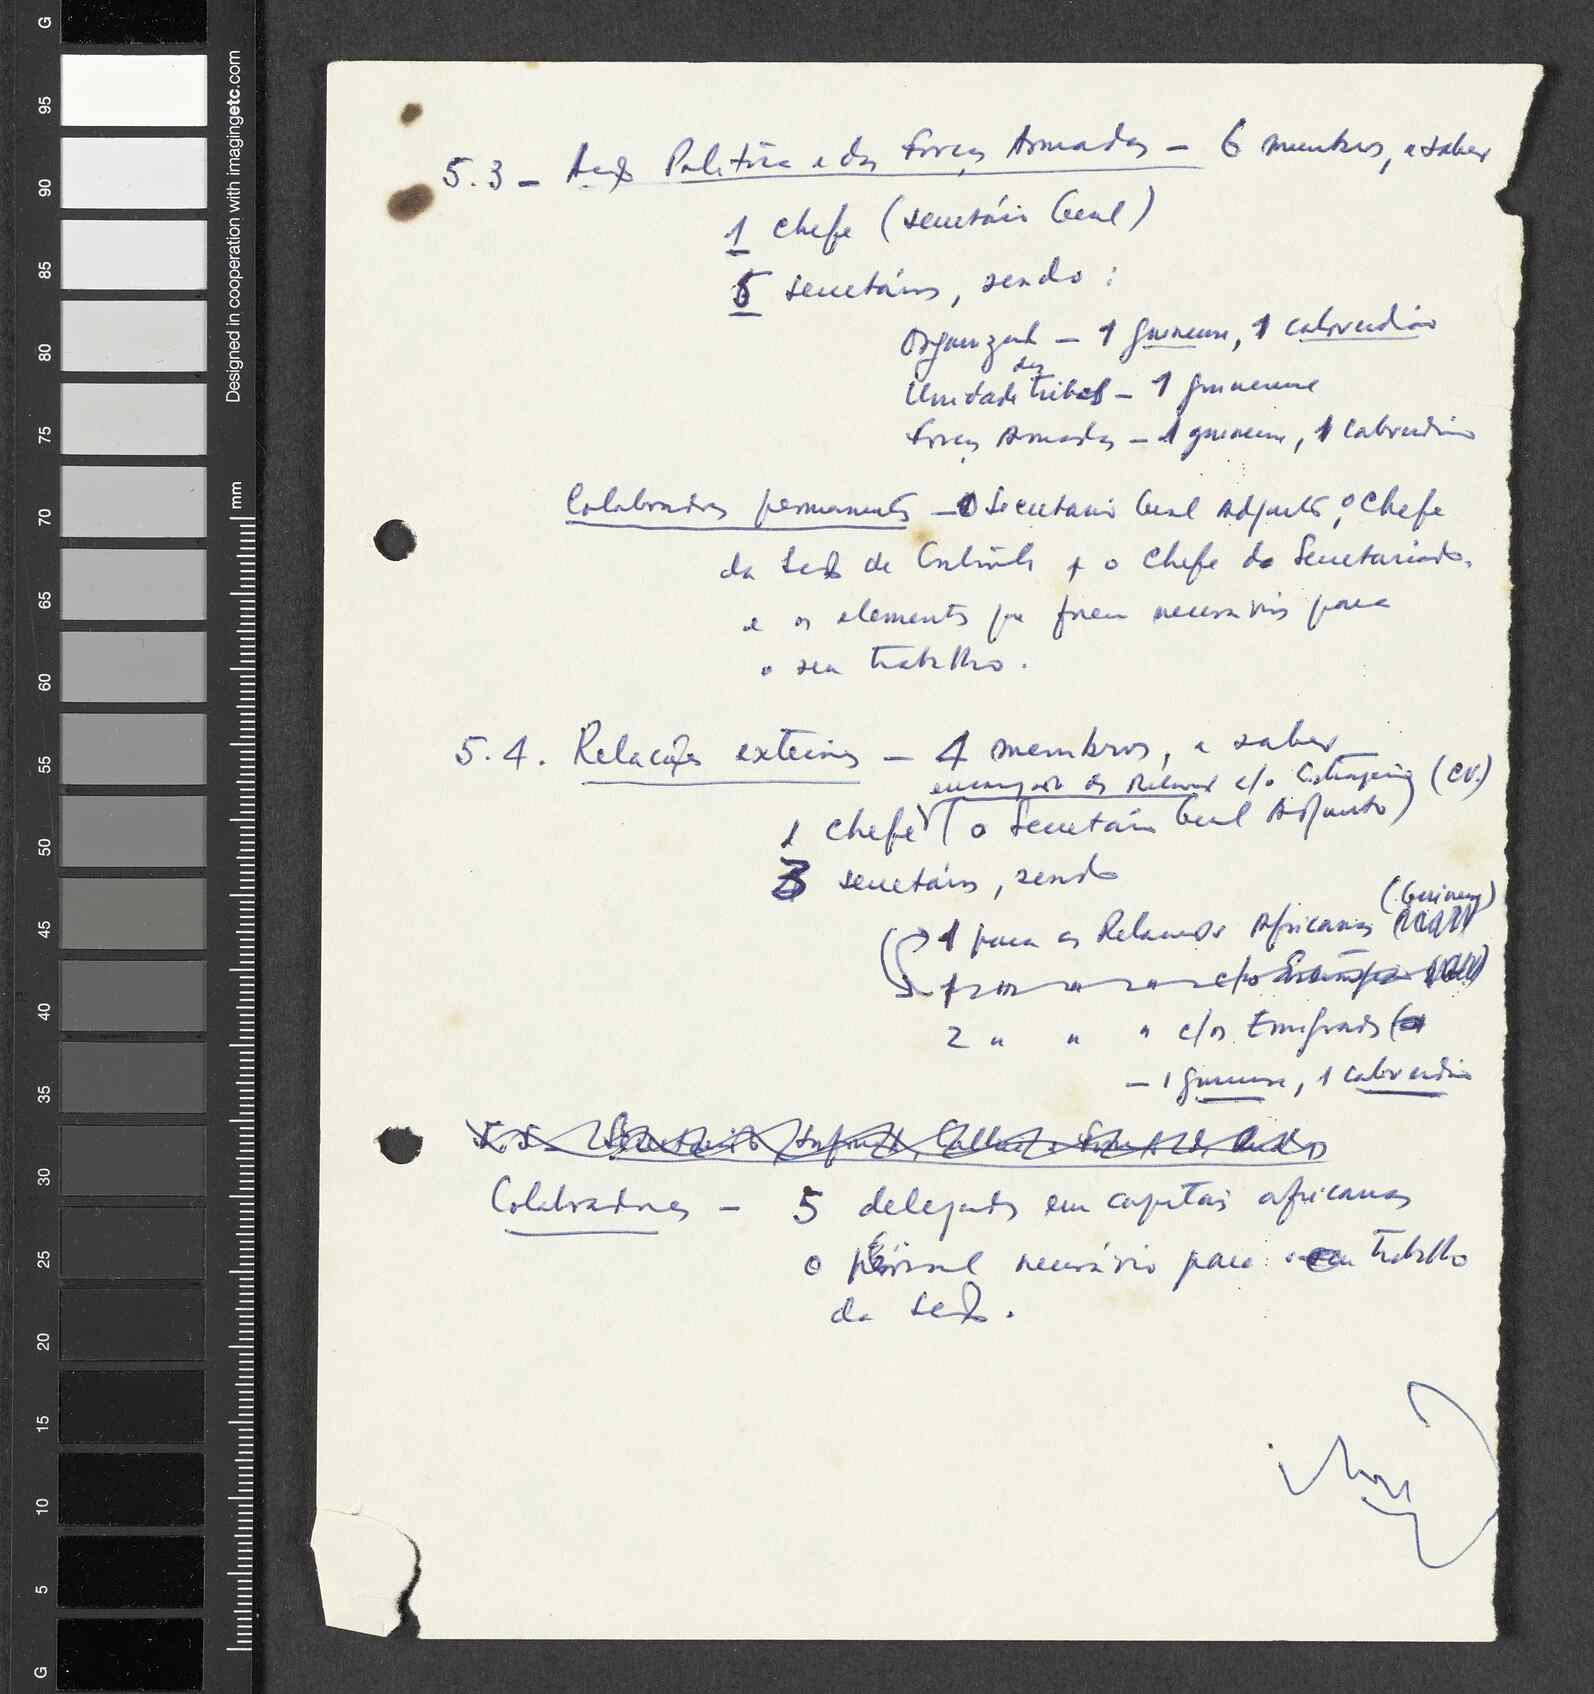 G
95
90
85
80
75
70
65
60
55
50
45
40
35
30
25
20
15
10
5
G
Designed in cooperation with imagingetc.com
mm
5.3 - Acção Política e das Forças Armadas - 6 membros, a saber
1 chefe (secretário Geral)
5 secretários, sendo :
Organização - 1 guineense, 1 caboverdiano
das
Unidade tribos - 1 guineense
Forças Armadas - 1 guineense, 1 caboverdiano
Colaboradores permanentes - O Secretario Geral Adjunto, o Chefe
da Secção de Contrôle e o Chefe do Secretariado,
e os elementos que forem necessários para
o seu trabalho.
5.4. Relações exteriores - 4 membros, a saber
encarregado das Relações c/o Estrangeiro (CV.)
1 chefe (o Secretário Geral Adjunto)
3 secretários, sendo
(Guineense)
1 para as Relações Africanas
1 " " " c/o Estrangeiro
2 " " " c/os Emigrados
- 1 guineense, 1 caboverdiano
5.5 - Secretariado, Informação, Cultura e
Colaboradores - 5 delegados em capitais africanas
o pessoal necessário para o trabalho
da Secção.